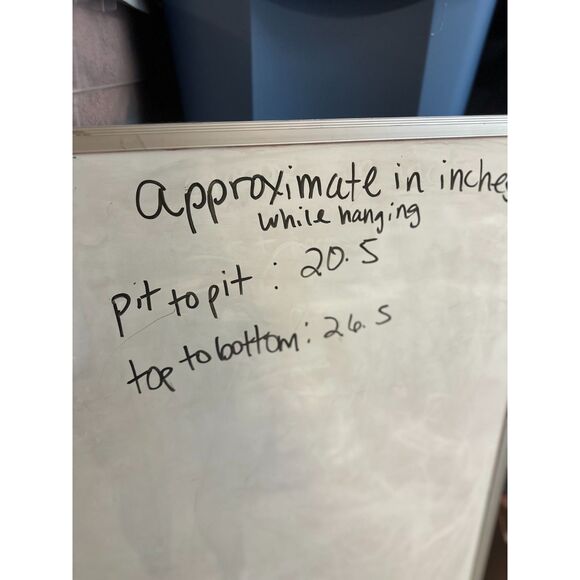 approximate in inches
while hanging
pit to pit : 20.5
top to bottom : 26.5